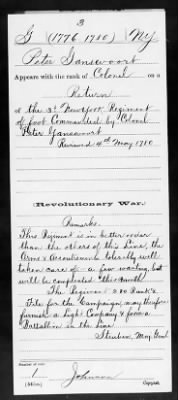 3
G (1776-1780) NY
Peter Gansevoort
Appears with the rank of Colonel on a
Return
of the 3d New York Regiment
of foot Commanded by Colonel
Peter Gansevoort
Revised 4th May 1780
(Revolutionary War.)
Remarks.
This Regiment is in better order
than the others of this Line, the
Arms & Accoutrements tolerably well
taken care of - a few wanting, but
will be compleated this Month.
The Regiment 200 Rank &
File for the Campaign, may therefore
furnish a Light Company & form a
Battallion in the line
Steuben, Maj. Genl
Number of
1
Johnson
Copyist.